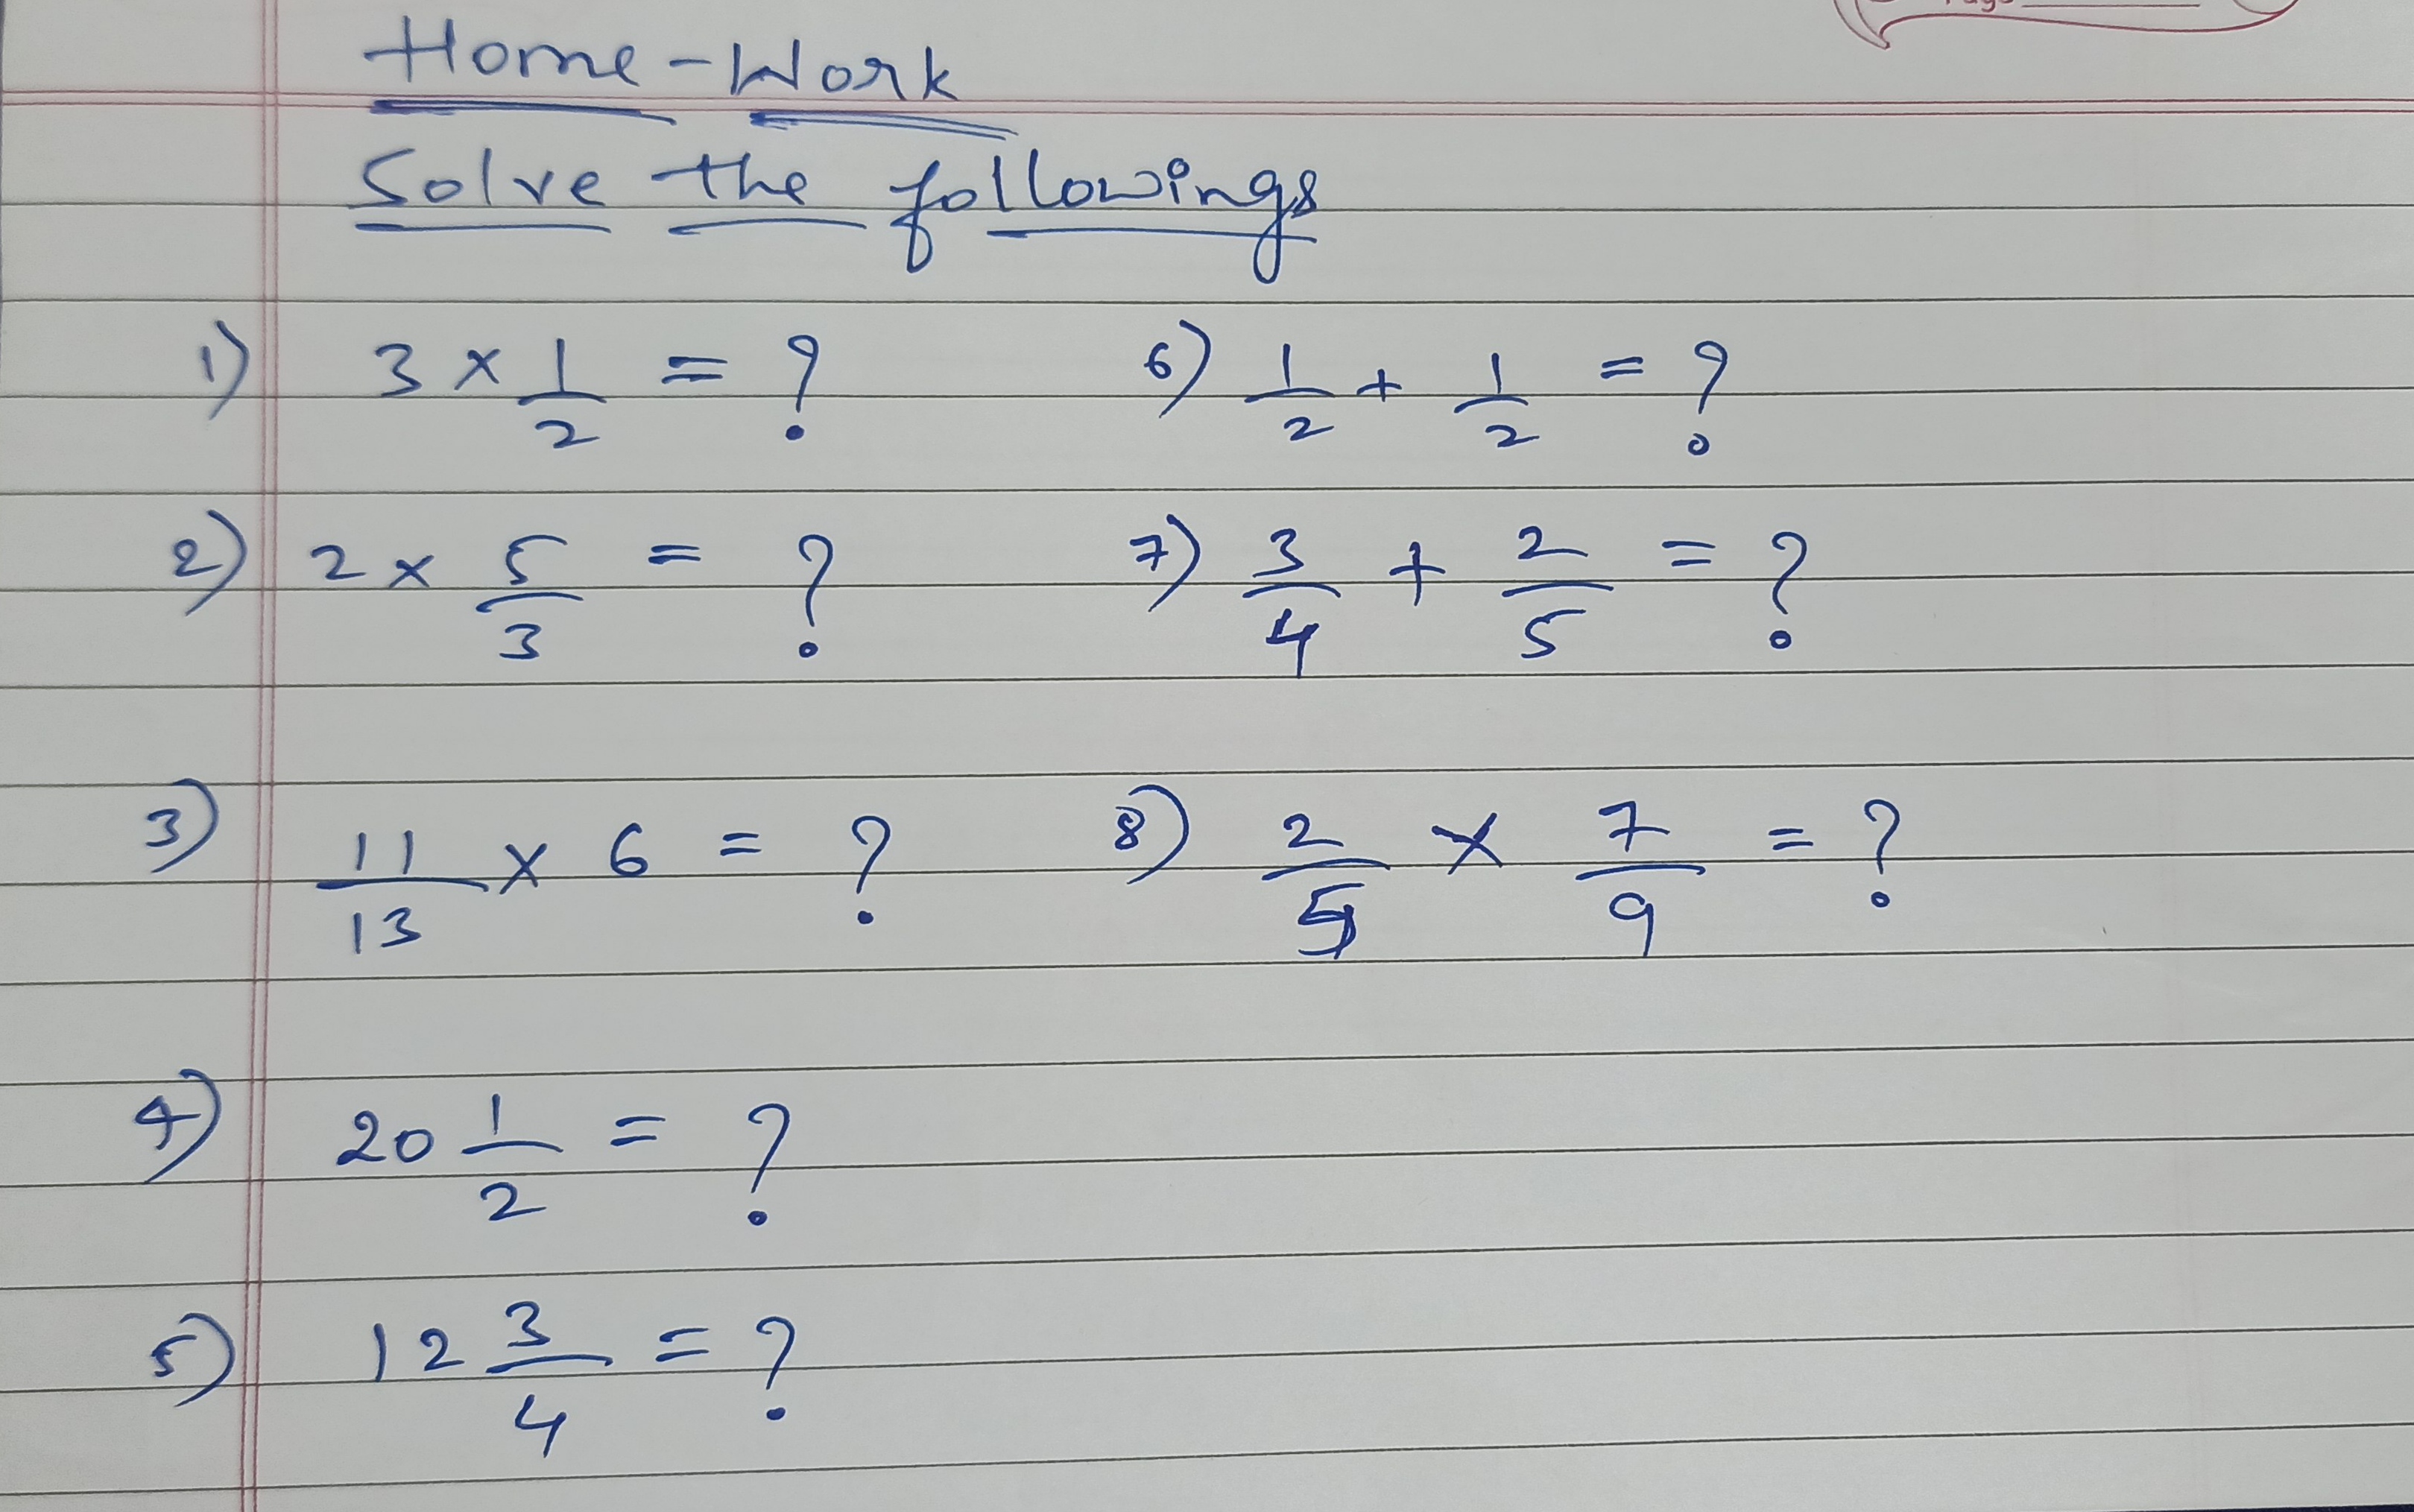 Home-Work
Solve the followings
1) 3 × 1/2 = ?
2) 2 × 5/3 = ?
3) 11/13 × 6 = ?
4) 20 1/2 = ?
5) 12 3/4 = ?
6) 1/2 + 1/2 = ?
7) 3/4 + 2/5 = ?
8) 2/5 × 7/9 = ?